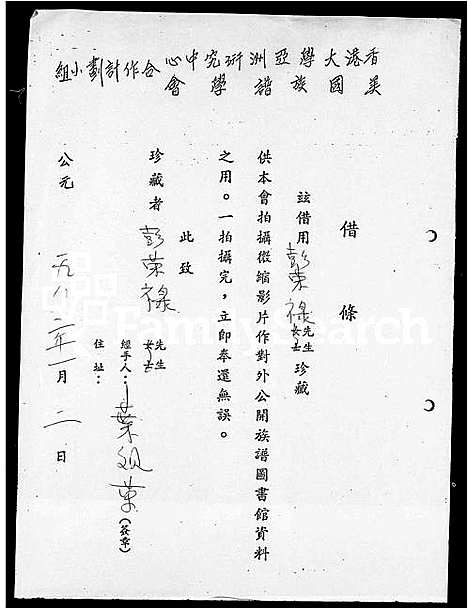 香港大學亞洲研究中心合作計劃小組
美國族譜學會
借條
玆借用彭荣祿先生女士珍藏
供本會拍攝微縮影片作對外公開族譜圖書館資料
之用。一拍攝完,立即奉還無誤。
此致
珍藏者 彭荣祿 先生女士
經手人:葉祖(簽章)
住址:
公元一九八二年一月二日
FamilySearch